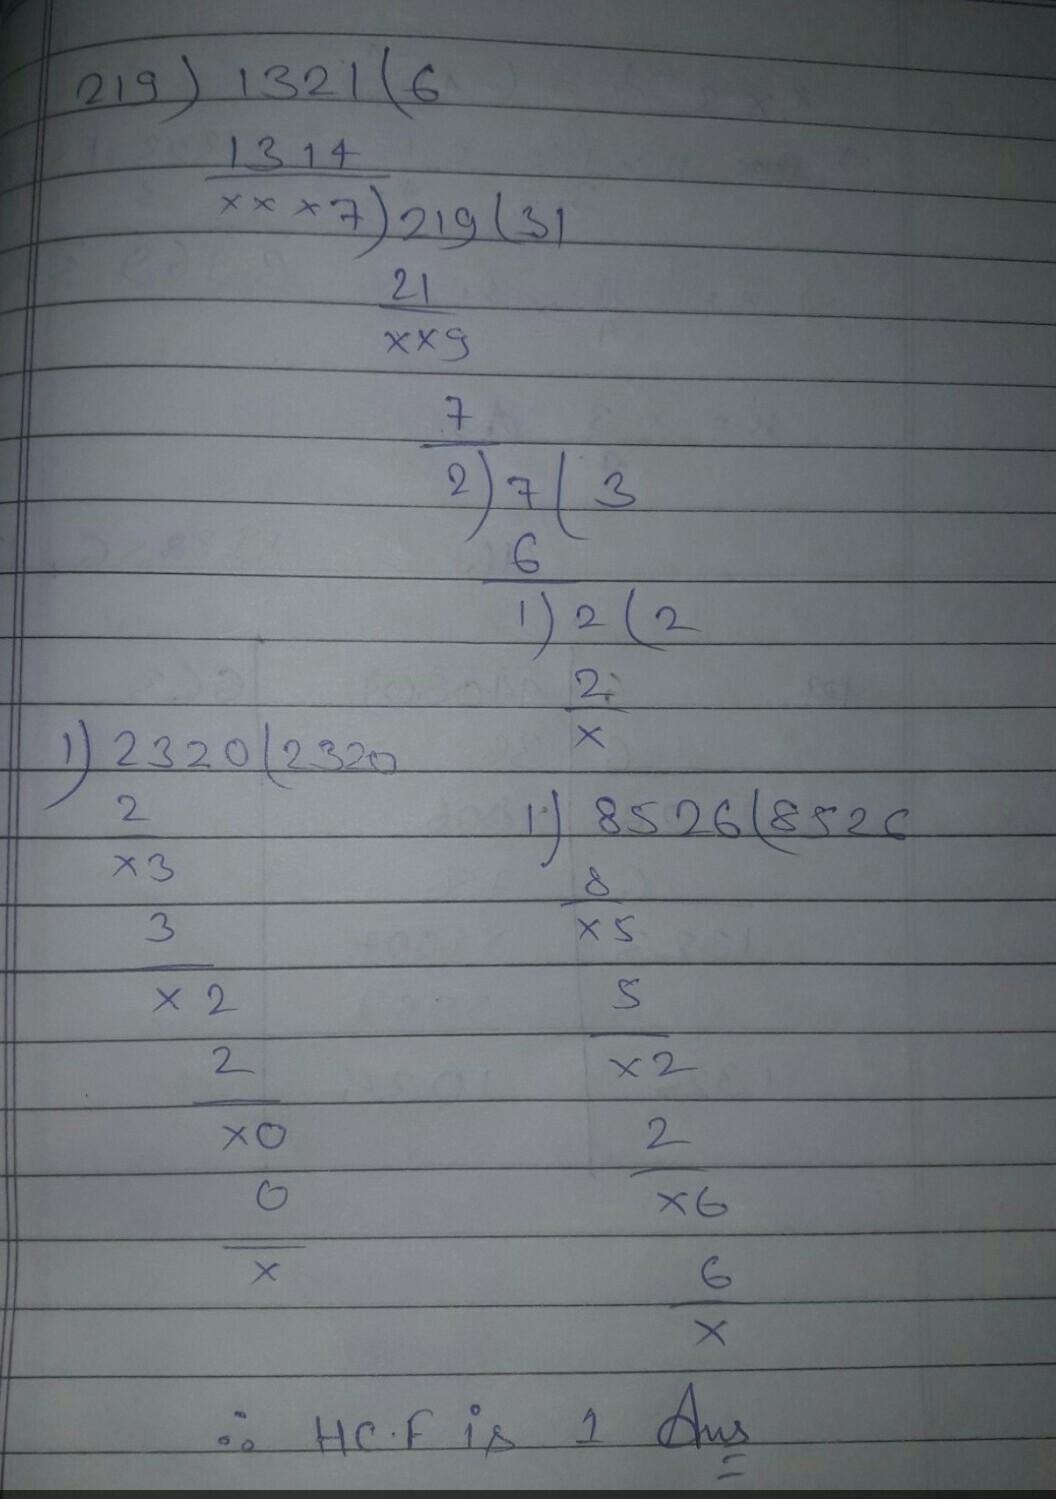 219) 1321 (6
1314
× × × 7) 219 (31
21
××9
7
2) 7 ( 3
6
1) 2 ( 2
2
×
1) 2320 (2320
2
×3
3
×2
2
×0
0
×
1) 8526 (8526
8
×5
5
×2
2
×6
6
×
∴ H.C.F is 1 Ans